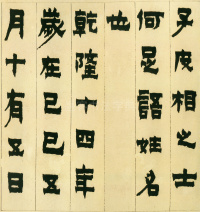 子皮相之士
何足語姓名
也
乾隆十四年
歲在己巳五
月十有五日